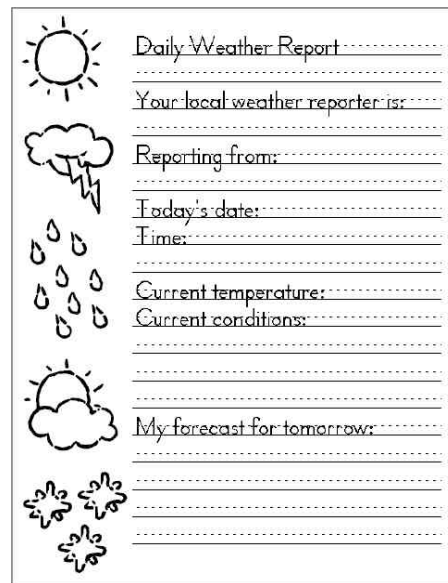 Daily Weather Report
Your local weather reporter is:
Reporting from:
Today's date:
Time:
Current temperature:
Current conditions:
My forecast for tomorrow: